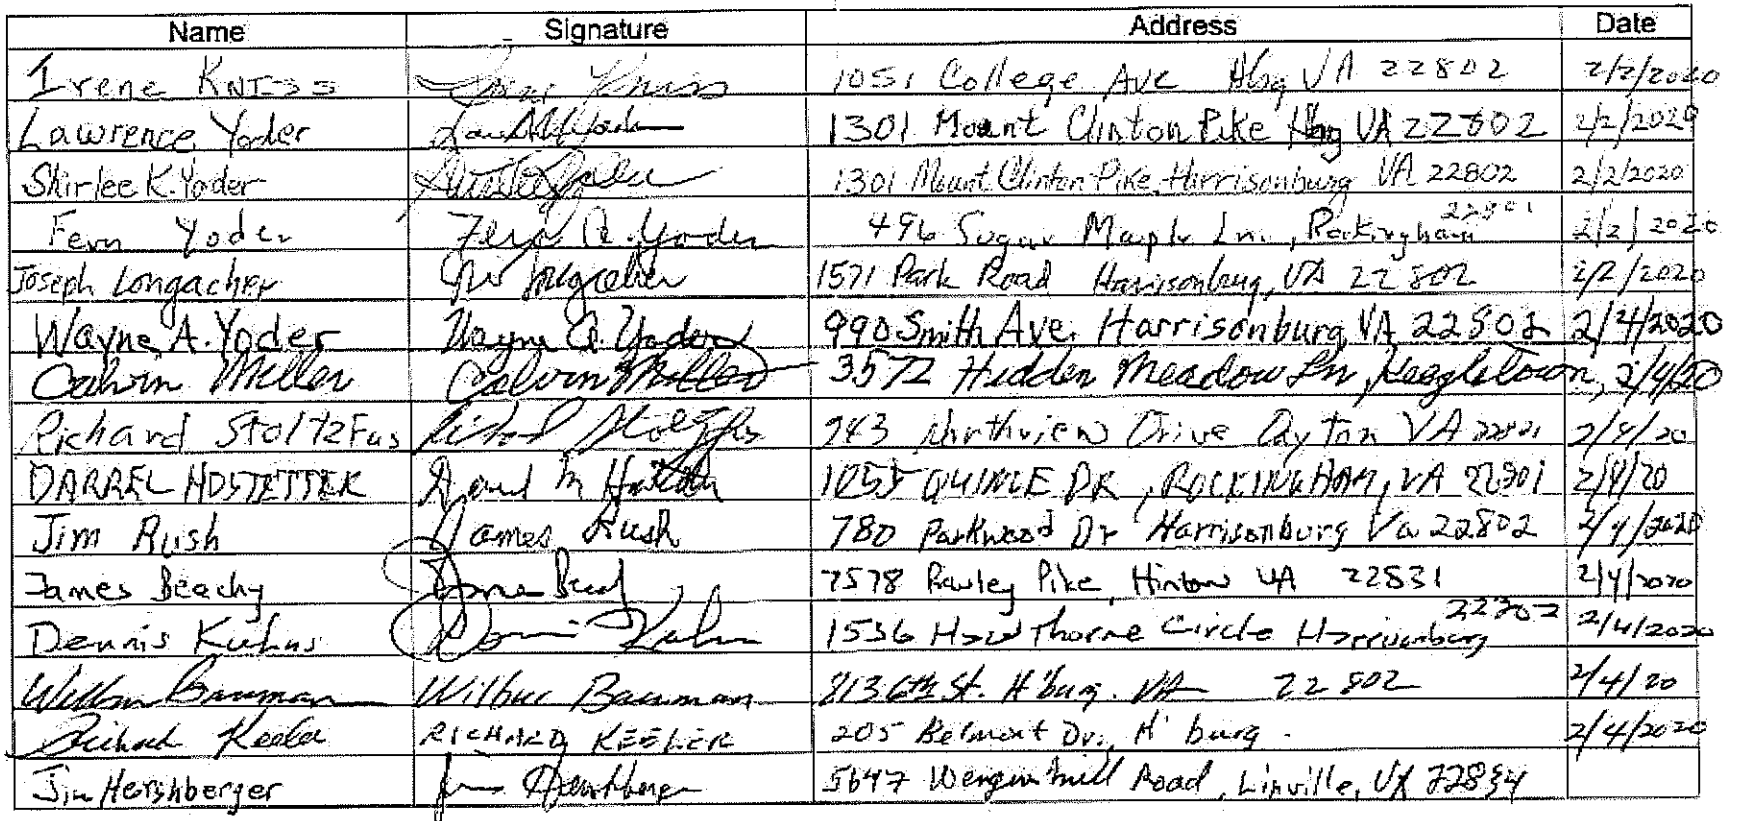 Name Signature Address Date
Irene Kniss Irene Kniss 1051 College Ave Hbg VA 22802 2/2/2020
Lawrence Yoder 1301 Mount Clinton Pike Hbg VA 22802 2/2/2020
Shirlee K. Yoder Shirlee Yoder 1301 Mount Clinton Pike, Harrisonburg VA 22802 2/2/2020
22801
Fern Yoder Fern R. Yoder 496 Sugar Maple Ln., Rockingham 2/2/2020
Joseph Longacher 1571 Park Road Harrisonburg, VA 22802 2/2/2020
Wayne A. Yoder Wayne A. Yoder 990 Smith Ave. Harrisonburg VA 22802 2/4/2020
Calvin Miller Calvin Miller 3572 Hidden Meadow Ln, Keezletown, 2/4/20
Richard Stoltzfus Richard Stoltzfus 243 Northview Drive Dayton VA 22821 2/4/20
DARREL HOSTETTER 1055 QUINCE DR, ROCKINGHAM, VA 22801 2/4/20
Jim Rush James Rush 780 Parkwood Dr Harrisonburg Va 22802 2/4/2020
James Beachy 7578 Rawley Pike, Hinton VA 22831 2/4/2020
22802
Dennis Kuhns Dennis Kuhns 1536 Hawthorne Circle Harrisonburg 2/4/2020
Wilbur Bauman Wilbur Bauman 6th St. H'burg. VA 22802 2/4/20
Richard Keeler RICHARD KEELER 205 Belmont Dr., H'burg. 2/4/2020
Jim Hershberger 5647 Wengers Mill Road, Linville, VA 22834